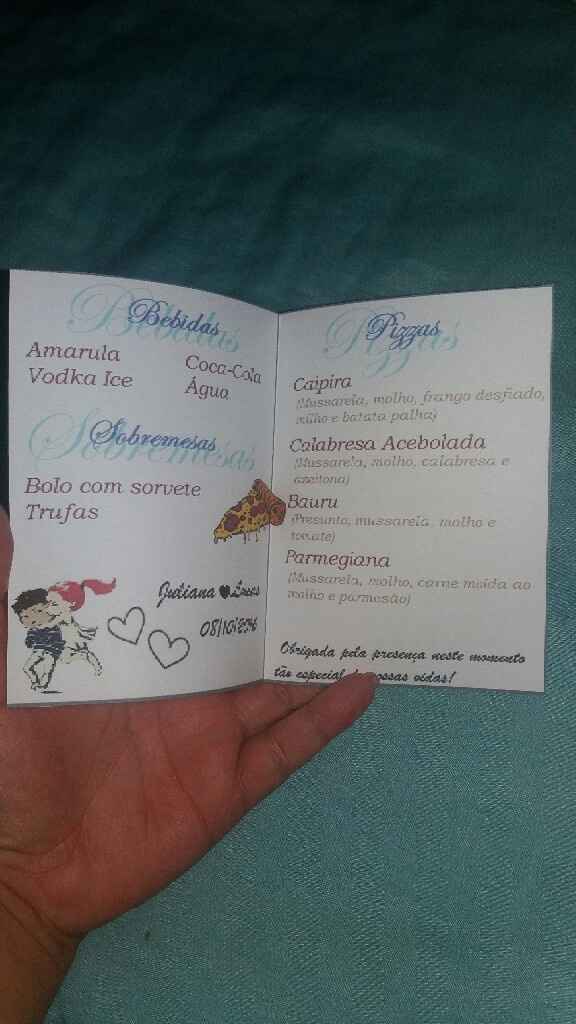 Bebidas
Amarula
Vodka Ice
Coca-Cola
Água
Sobremesas
Bolo com sorvete
Trufas
Juliana Lucas
08/10/2016
Pizzas
Caipira
(Mussarela, molho, frango desfiado,
milho e batata palha)
Calabresa Acebolada
(Mussarela, molho, calabresa e
azeitona)
Bauru
(Presunto, mussarela, molho e
tomate)
Parmegiana
(Mussarela, molho, carne moída ao
molho e parmesão)
Obrigada pela presença neste momento
tão especial de nossas vidas!